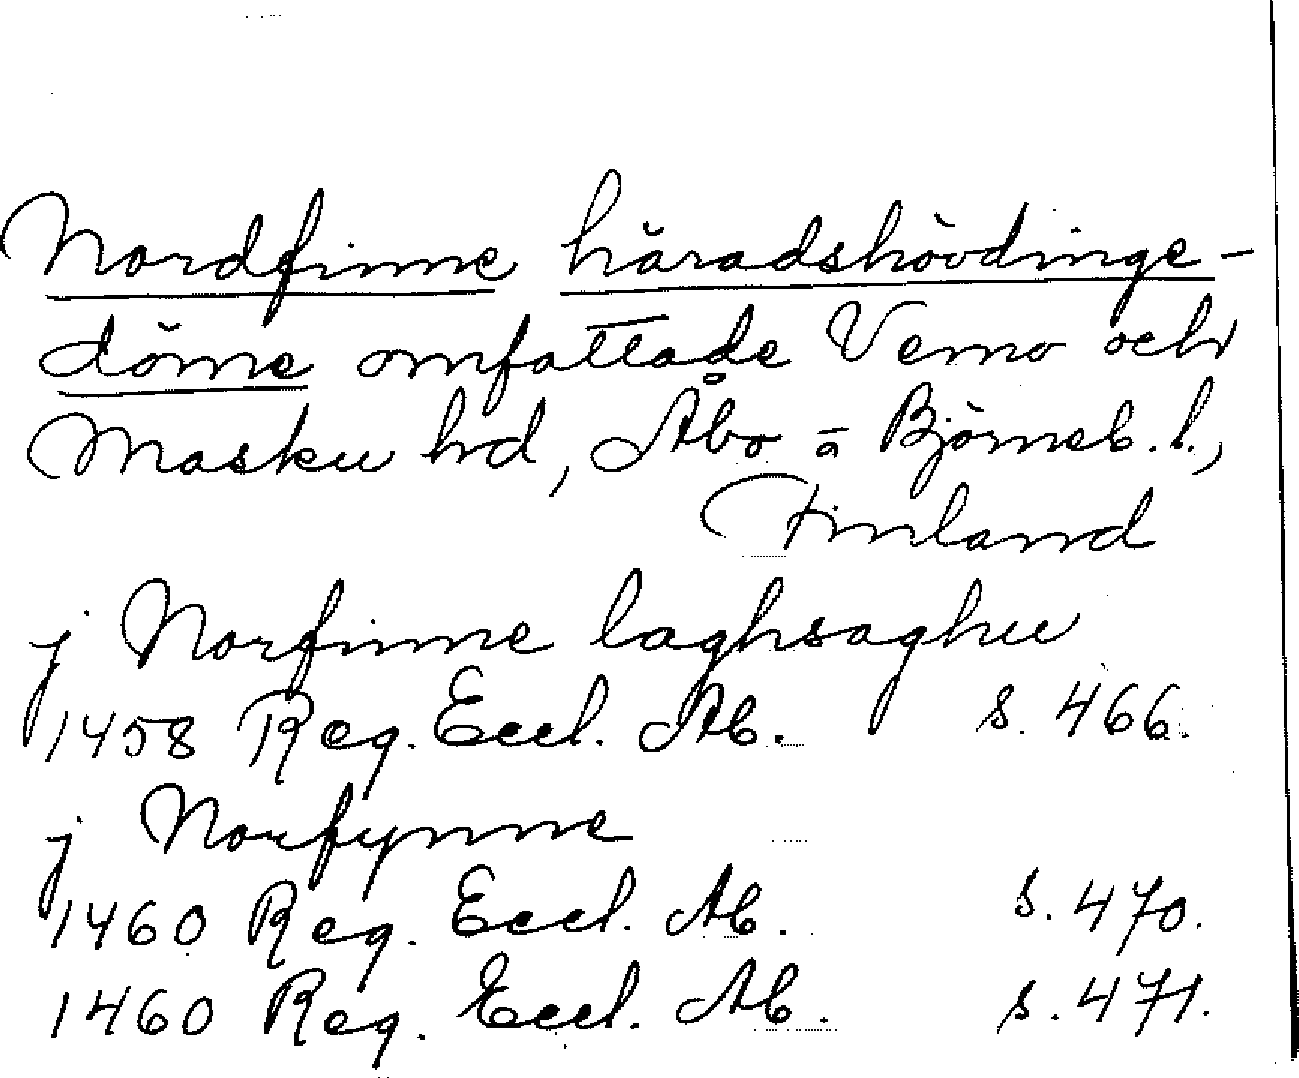 Nordfinne häradshövdinge-
döme omfattade Vemo och
Masku hd, Åbo o Björneb. l.,
Finland
j Norfinne laghsaghu
1458 Reg. Eccl. Ab. s. 466.
j Norfynne
1460 Reg. Eccl. Ab. s. 470.
1460 Reg. Eccl. Ab. s. 471.